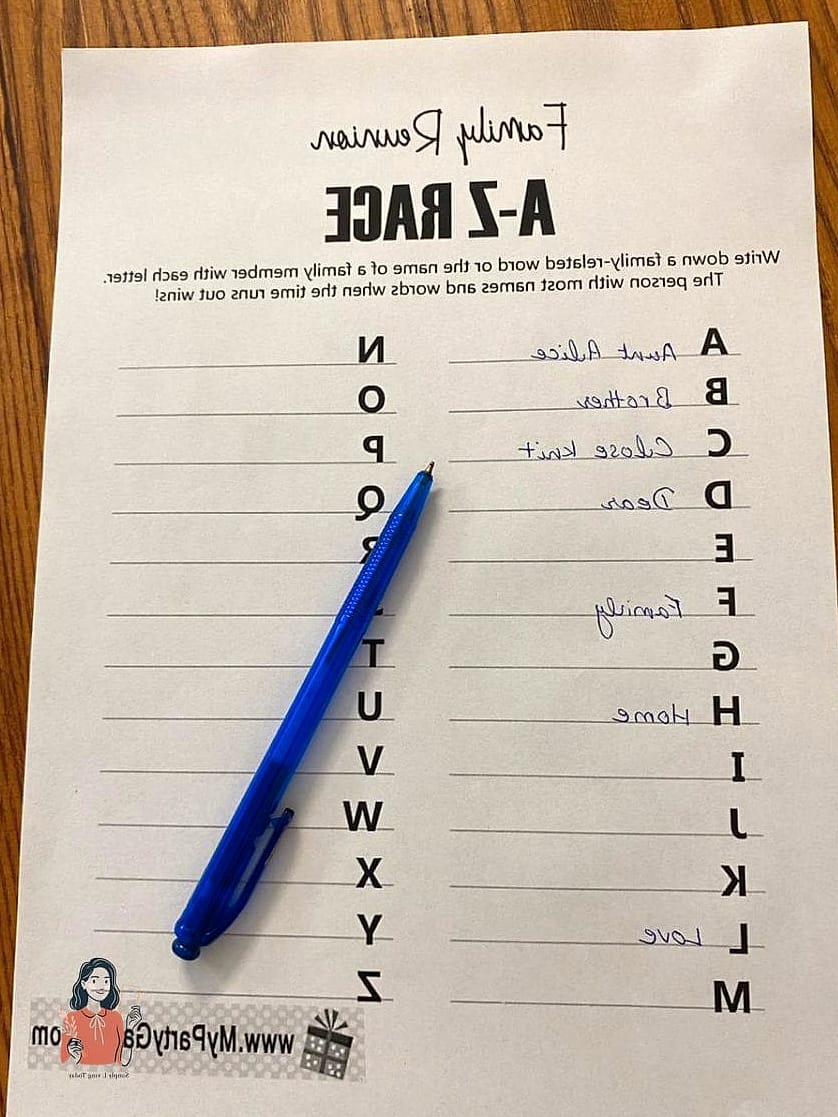 Family Reunion
A-Z RACE
Write down a family-related word or the name of a family member with each letter.
The person with most names and words when the time runs out wins!
A Aunt Alice
B Brother
C Close knit
D Dear
E
F Family
G
H Home
I
J
K
L Love
M
N
O
P
Q
R
T
U
V
W
X
Y
Z
www.MyPartyGa om
Simply Living Today